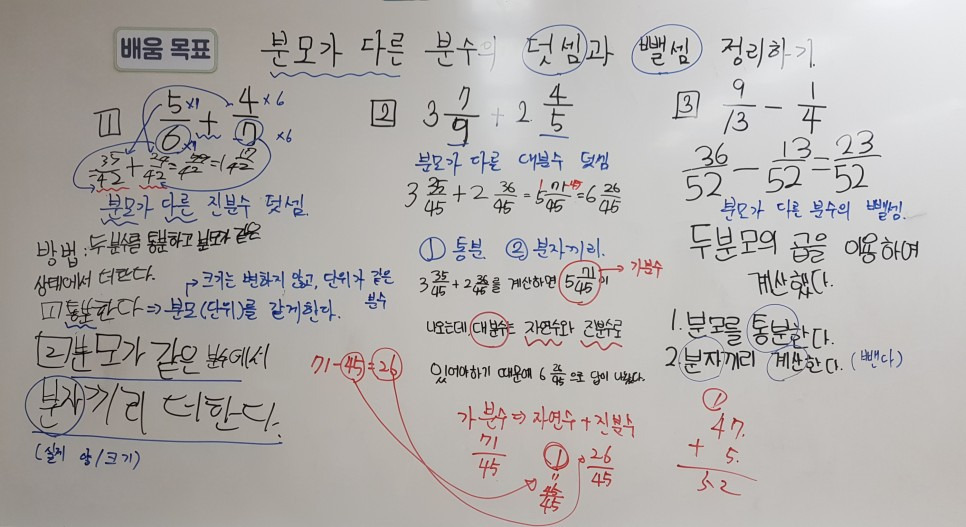 배움 목표
분모가 다른 분수의 덧셈과 뺄셈 정리하기.
1
5/6 ×7 + 4/7 ×6 ×6
= 35/42 + 24/42 = 59/42 = 1 17/42
분모가 다른 진분수 덧셈.
방법: 두 분수를 통분하고 분모가 같은
상태에서 더한다.
1 통분한다 ⇒ 분모(단위)를 같게한다.
→ 크기는 변하지 않고, 단위가 같은
분수
2 분모가 같은 분수에서
분자끼리 더한다.
(실제 양/크기)
2
3 7/9 + 2 4/5
분모가 다른 대분수 덧셈
3 35/45 + 2 36/45 = 5 71/45 = 6 26/45
① 통분 ② 분자끼리.
3 35/45 + 2 36/45를 계산하면 5 71/45이
→ 가분수
나오는데, 대분수는 자연수와 진분수로
있어야하기 때문에 6 26/45 으로 답이 나왔다.
71-45=26
가분수 ⇒ 자연수 + 진분수
71/45
1
26/45
"
45/45
3
9/13 - 1/4
36/52 - 13/52 = 23/52
분모가 다른 분수의 뺄셈.
두분모의 곱을 이용하여
계산했다.
1. 분모를 통분한다.
2. 분자끼리 계산한다. (뺀다)
1
47.
+ 5.
52